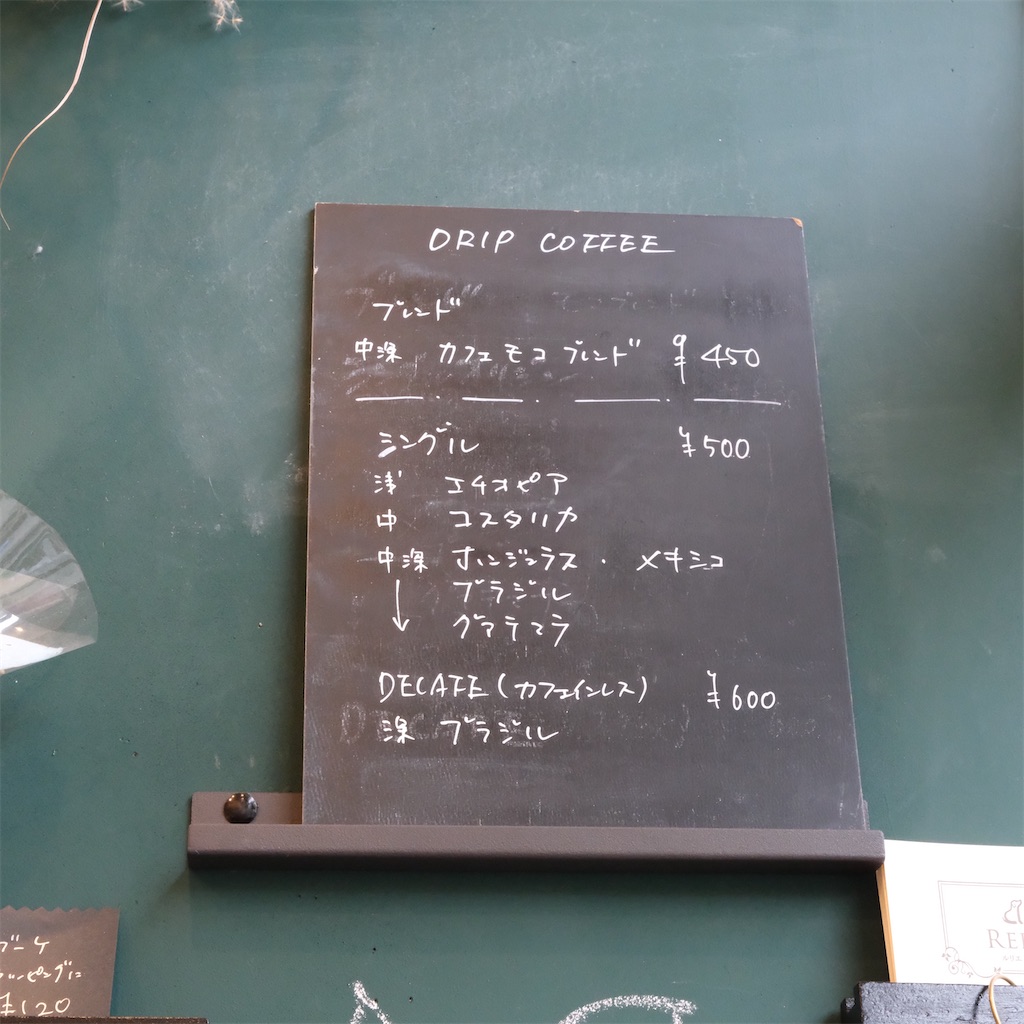 DRIP COFFEE
ブレンド
中深 カフェモコブレンド ¥450
シングル ¥500
浅 エチオピア
中 コスタリカ
中深 ホンジュラス ・ メキシコ
↓ ブラジル
グアテマラ
DECAFE(カフェインレス) ¥600
深 ブラジル
¥120